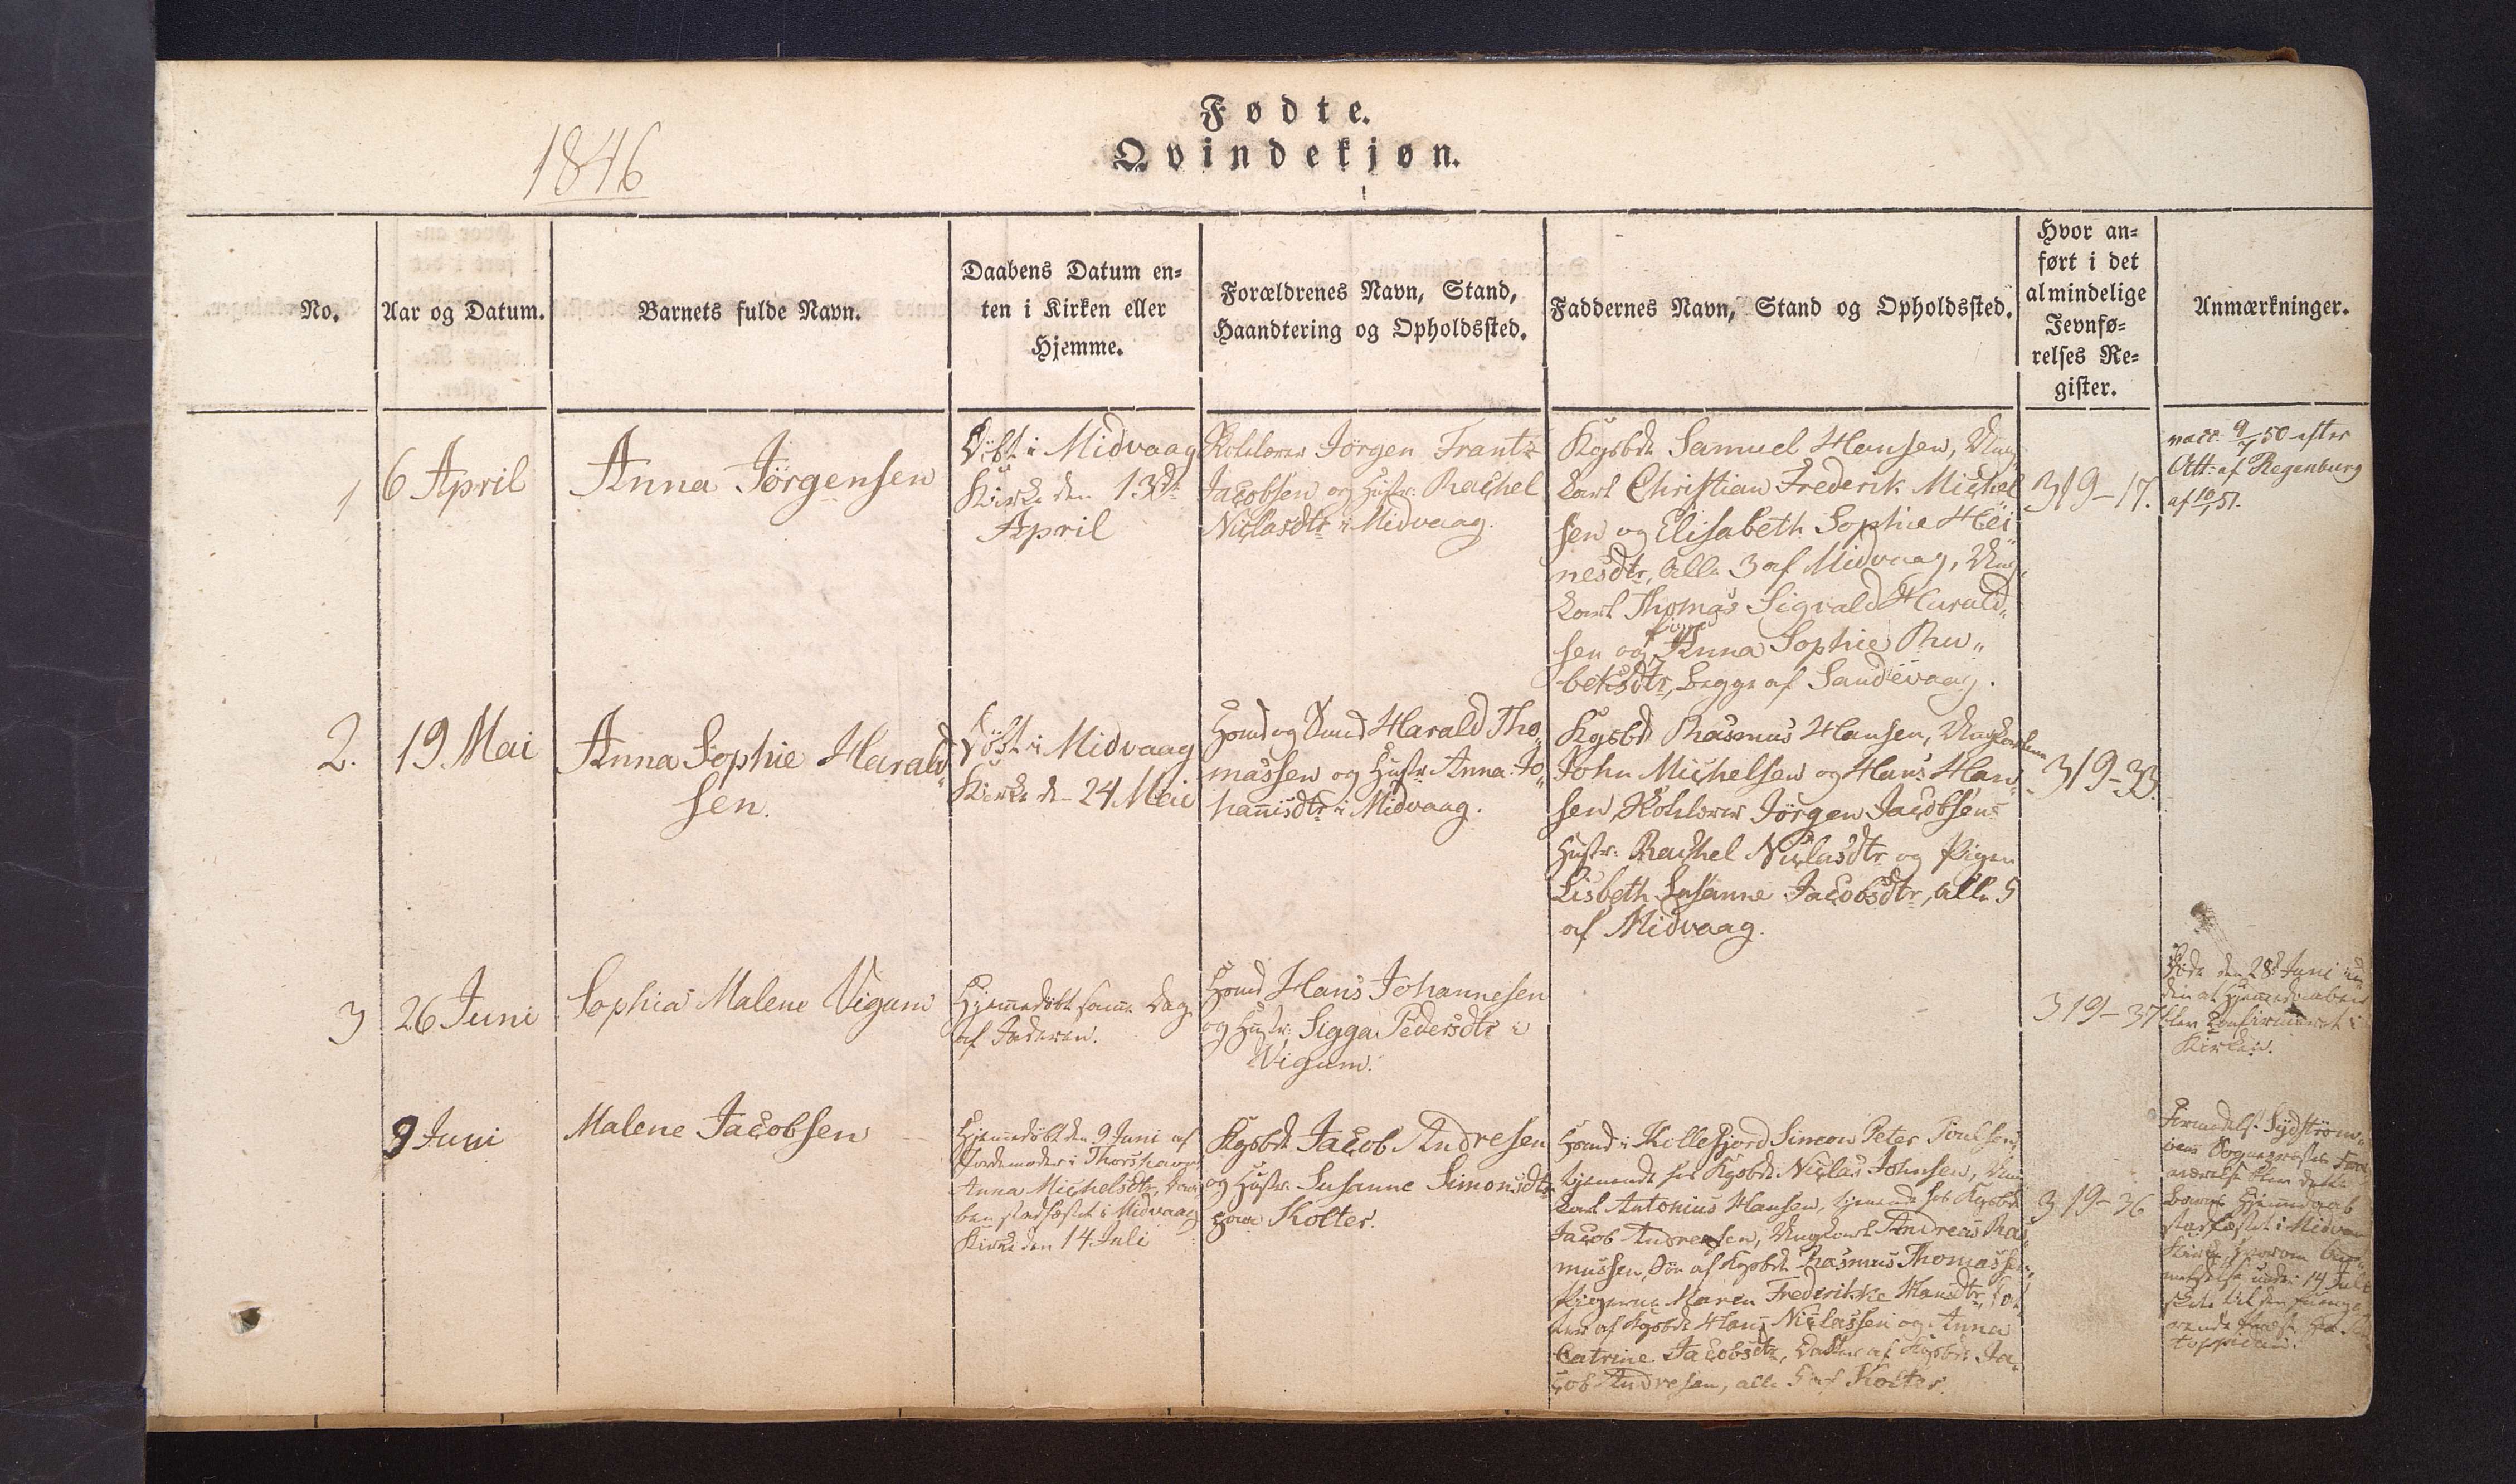 Fødte.
Qvindekjøn.
1846
No.
Aar og Datum.
Barnets fulde Navn.
Daabens Datum en-
ten i Kirken eller
Hjemme.
Forældrenes Navn, Stand,
Haandtering og Opholdssted.
Faddernes Navn, Stand og Opholdssted.
Hvor an-
ført i det
almindelige
Jevnfø-
relses Re-
gister.
Anmærkninger.
1
6 April
Anna Jörgensen
Döbt i Midvaag
Kirke den 13de
April
Jörgen Frantz
Jacobsen og Hustr: Rachel
Niclasdtr i Midvaag.
Kgsbd. Samuel Hansen, Ung
karl Christian Frederik Michel
sen og Elisabeth Sophie Hei
nesdtr, alle 3 af Midvaag, Ung
karl Thomas Sigvald Harald„
sen og Pigen Anna Sophie Ru„
beksdtr, begge af Sandevaag.
319-17.
vacc. 9/7 50 efter
Att: af Regenburg
af 10/ 51.
2.
19 Mai
Anna Sophie Harald„
sen.
Döbt i Midvaag
Kirke d. 24 Mai
Harald Tho„
massen og Hustr: Anna Jo„
hannisdtr i Midvaag.
Kgsbd. Rasmus Hansen, Ungkarlene
John Michelsen og Hans Han„
sen, Jörgen Jacobsens
Hustr: Rachel Niclasdtr og Pigen
Lisbeth Susanne Jacobsdtr, alle 5
af Midvaag.
319-33.
3
26 Juni
Sophia Malene Vigum
Hjemmedöbt samme Dag
af Faderen.
Hans Johannesen
og Hustr: Sigga Pedersdtr i
Vigum.
319-37
Döde den 28de Juni
den at Hjemmedaaben
blev confirmeret i
Kirken.
9 Juni
Malene Jacobsen
Hjemmedöbt den 9 Juni af
Jordemoder i Thorshavn
Anna Michelsdtr, Daa
ben stadfæstet i Midvaag
Kirke den 14 Juli
Kgsbd. Jacob Andresen
og Hustr: Susanne Simonsdtr
paa Kolter.
i Kollefjord Simeon Peter Poulsen
tjenende hos Kgsbd. Niclas Johnsen, Ung
karl Antonius Hansen, tjenende hos Kgsbd
Jacob Andresen, Ungkarl Andreas Ras„
mussen, Sön af Kgsbd. Rasmus Thomassen,
Pigerne Maren Frederikke Hansdtr,
af Kgsbd. Hans Niclassen og Anna
Catrine Jacobsdtr, Datter af Kgsbd. Ja„
cob Andresen, alle 5 af Kolter.
319-36
Formedelst Sydström„
öens Sognepræsts
blev dette
Barns Hjemmedaab
stadfæstet i Midvaag
Kirke, hvorom
under 14 Juli